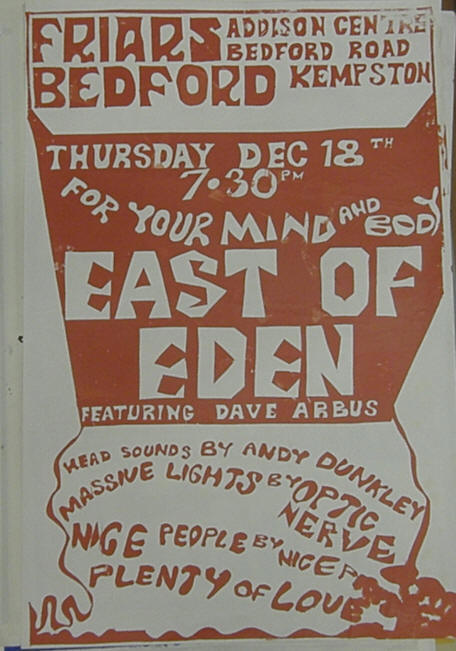 FRIARS ADDISON CENTRE
BEDFORD ROAD
BEDFORD KEMPSTON
THURSDAY DEC 18TH
7.30PM
FOR YOUR MIND AND BODY
EAST OF
EDEN
FEATURING DAVE ARBUS
HEAD SOUNDS BY ANDY DUNKLEY
MASSIVE LIGHTS BY OPTIC
NERVE
NICE PEOPLE BY NICE
PLENTY OF LOVE